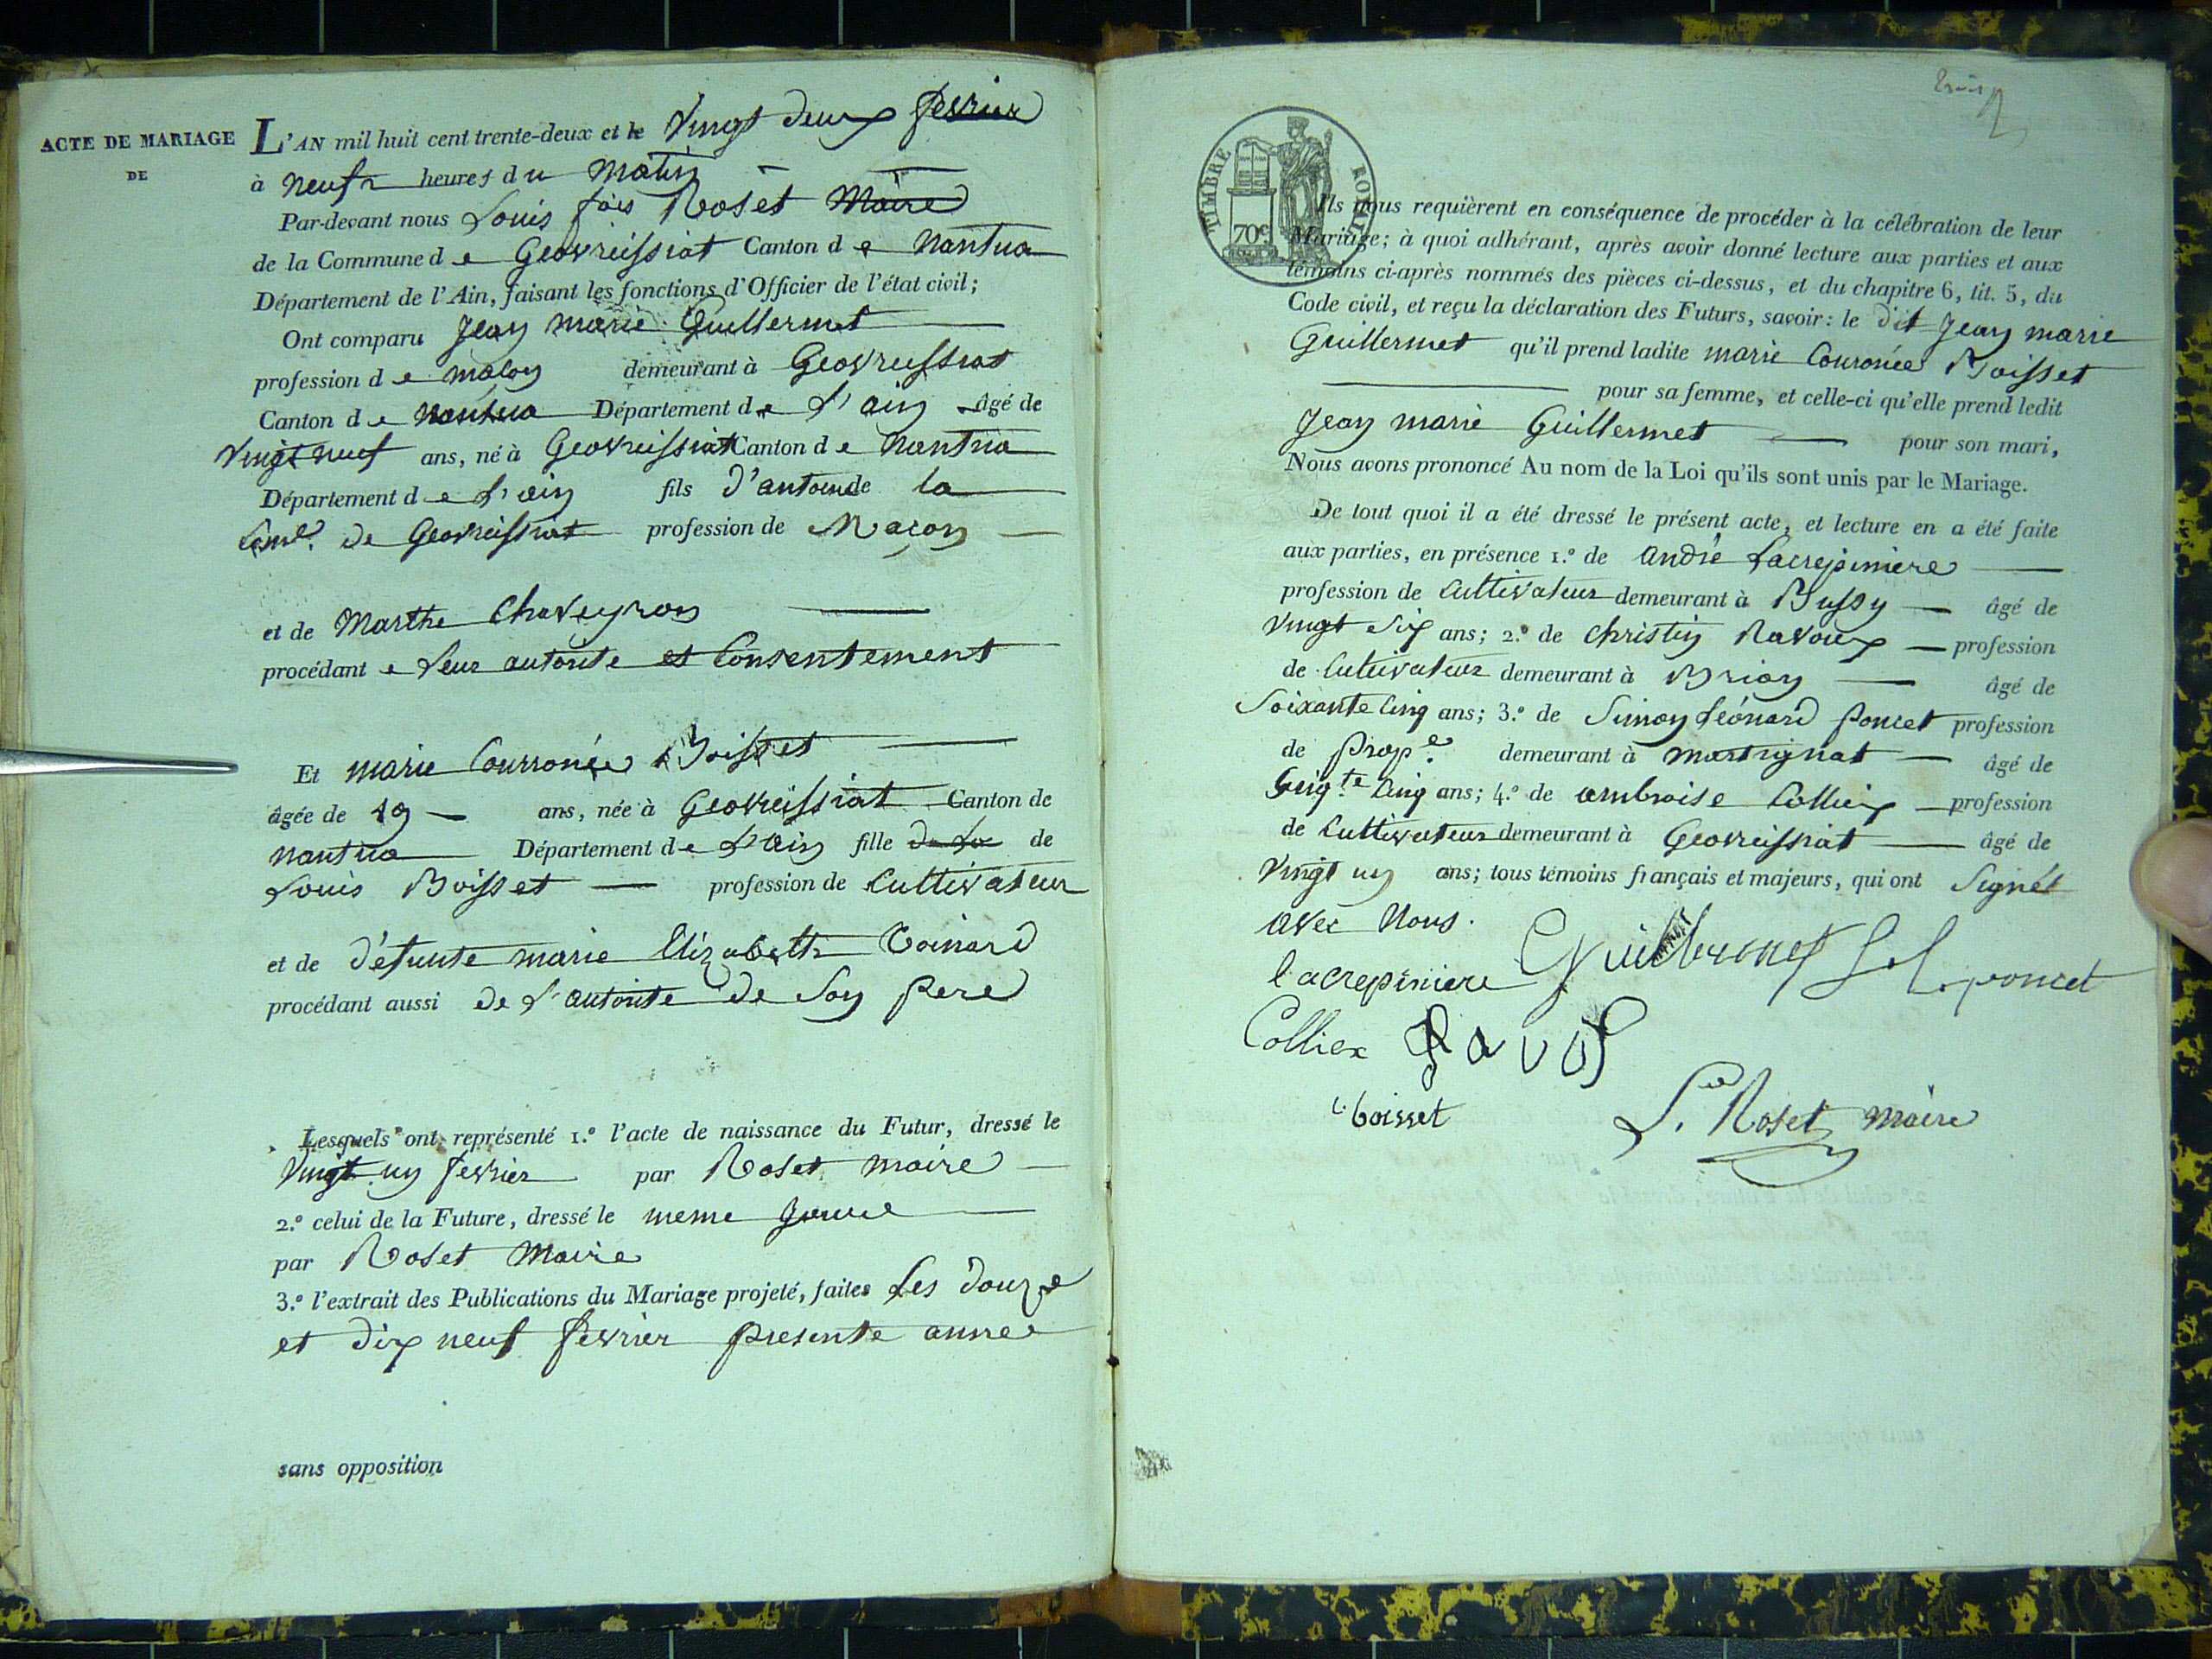 ACTE DE MARIAGE
DE
L'AN mil huit cent trente-deux et le Vingt deux fevrier
à neuf heures du Matin
Par-devant nous Louis fois Roset Maire
de la Commune de Geovreissiat Canton de Nantua
Département de l'Ain, faisant les fonctions d'Officier de l'état civil;
Ont comparu Jean marie Guillermet
profession de maçon demeurant à Geovreissiat
Canton de Nantua Département de L'ain âgé de
Vingt neuf ans, né à Geovreissiat Canton de Nantua
Département de L'ain fils d'antoine de la
de Geovreissiat profession de Maçon
et de Marthe Chaveyron
procédant e Leur autorite et Consentement
Et marie Courronée Boisset
âgée de 19 ans, née à Geovreissiat Canton de
Nantua Département de L'ain fille de
Louis Boisset profession de Cultivateur
et de défunte marie Elizabeth Coinard
procédant aussi de L'autorite de Son Pere
Lesquels ont représenté 1.º l'acte de naissance du Futur, dressé le
Vingt un fevrier par Roset maire
2.º celui de la Future, dressé le meme
par Roset Maire
3.º l'extrait des Publications du Mariage projeté, faites Les douze
et dix neuf fevrier presente annee
sans opposition
TIMBRE ROYAL
70c
Ils nous requièrent en conséquence de procéder à la célébration de leur
Mariage; à quoi adhérant, après avoir donné lecture aux parties et aux
témoins ci-après nommés des pièces ci-dessus, et du chapitre 6, tit. 5, du
Code civil, et reçu la déclaration des Futurs, savoir: le dit Jean marie
Guillermet qu'il prend ladite marie Couronée Boisset
pour sa femme, et celle-ci qu'elle prend ledit
Jean marie Guillermet pour son mari,
Nous avons prononcé Au nom de la Loi qu'ils sont unis par le Mariage.
De tout quoi il a été dressé le présent acte, et lecture en a été faite
aux parties, en présence 1.º de andré Lacrepiniere
profession de Cultivateur demeurant à Bussy âgé de
Vingt Six ans; 2.º de Christin Ravoux profession
de Cultivateur demeurant à Brion âgé de
Soixante Cinq ans; 3.º de Simon Léonard Poncet profession
de Prop.e demeurant à martignat âgé de
Cinq ans; 4.º de ambroise Colliex profession
de Cultivateur demeurant à Geovreissiat âgé de
Vingt un ans; tous témoins français et majeurs, qui ont Signés
avec Nous.
lacrepiniere Guillermet S L poncet
Colliex
L. boisset
L. Roset maire